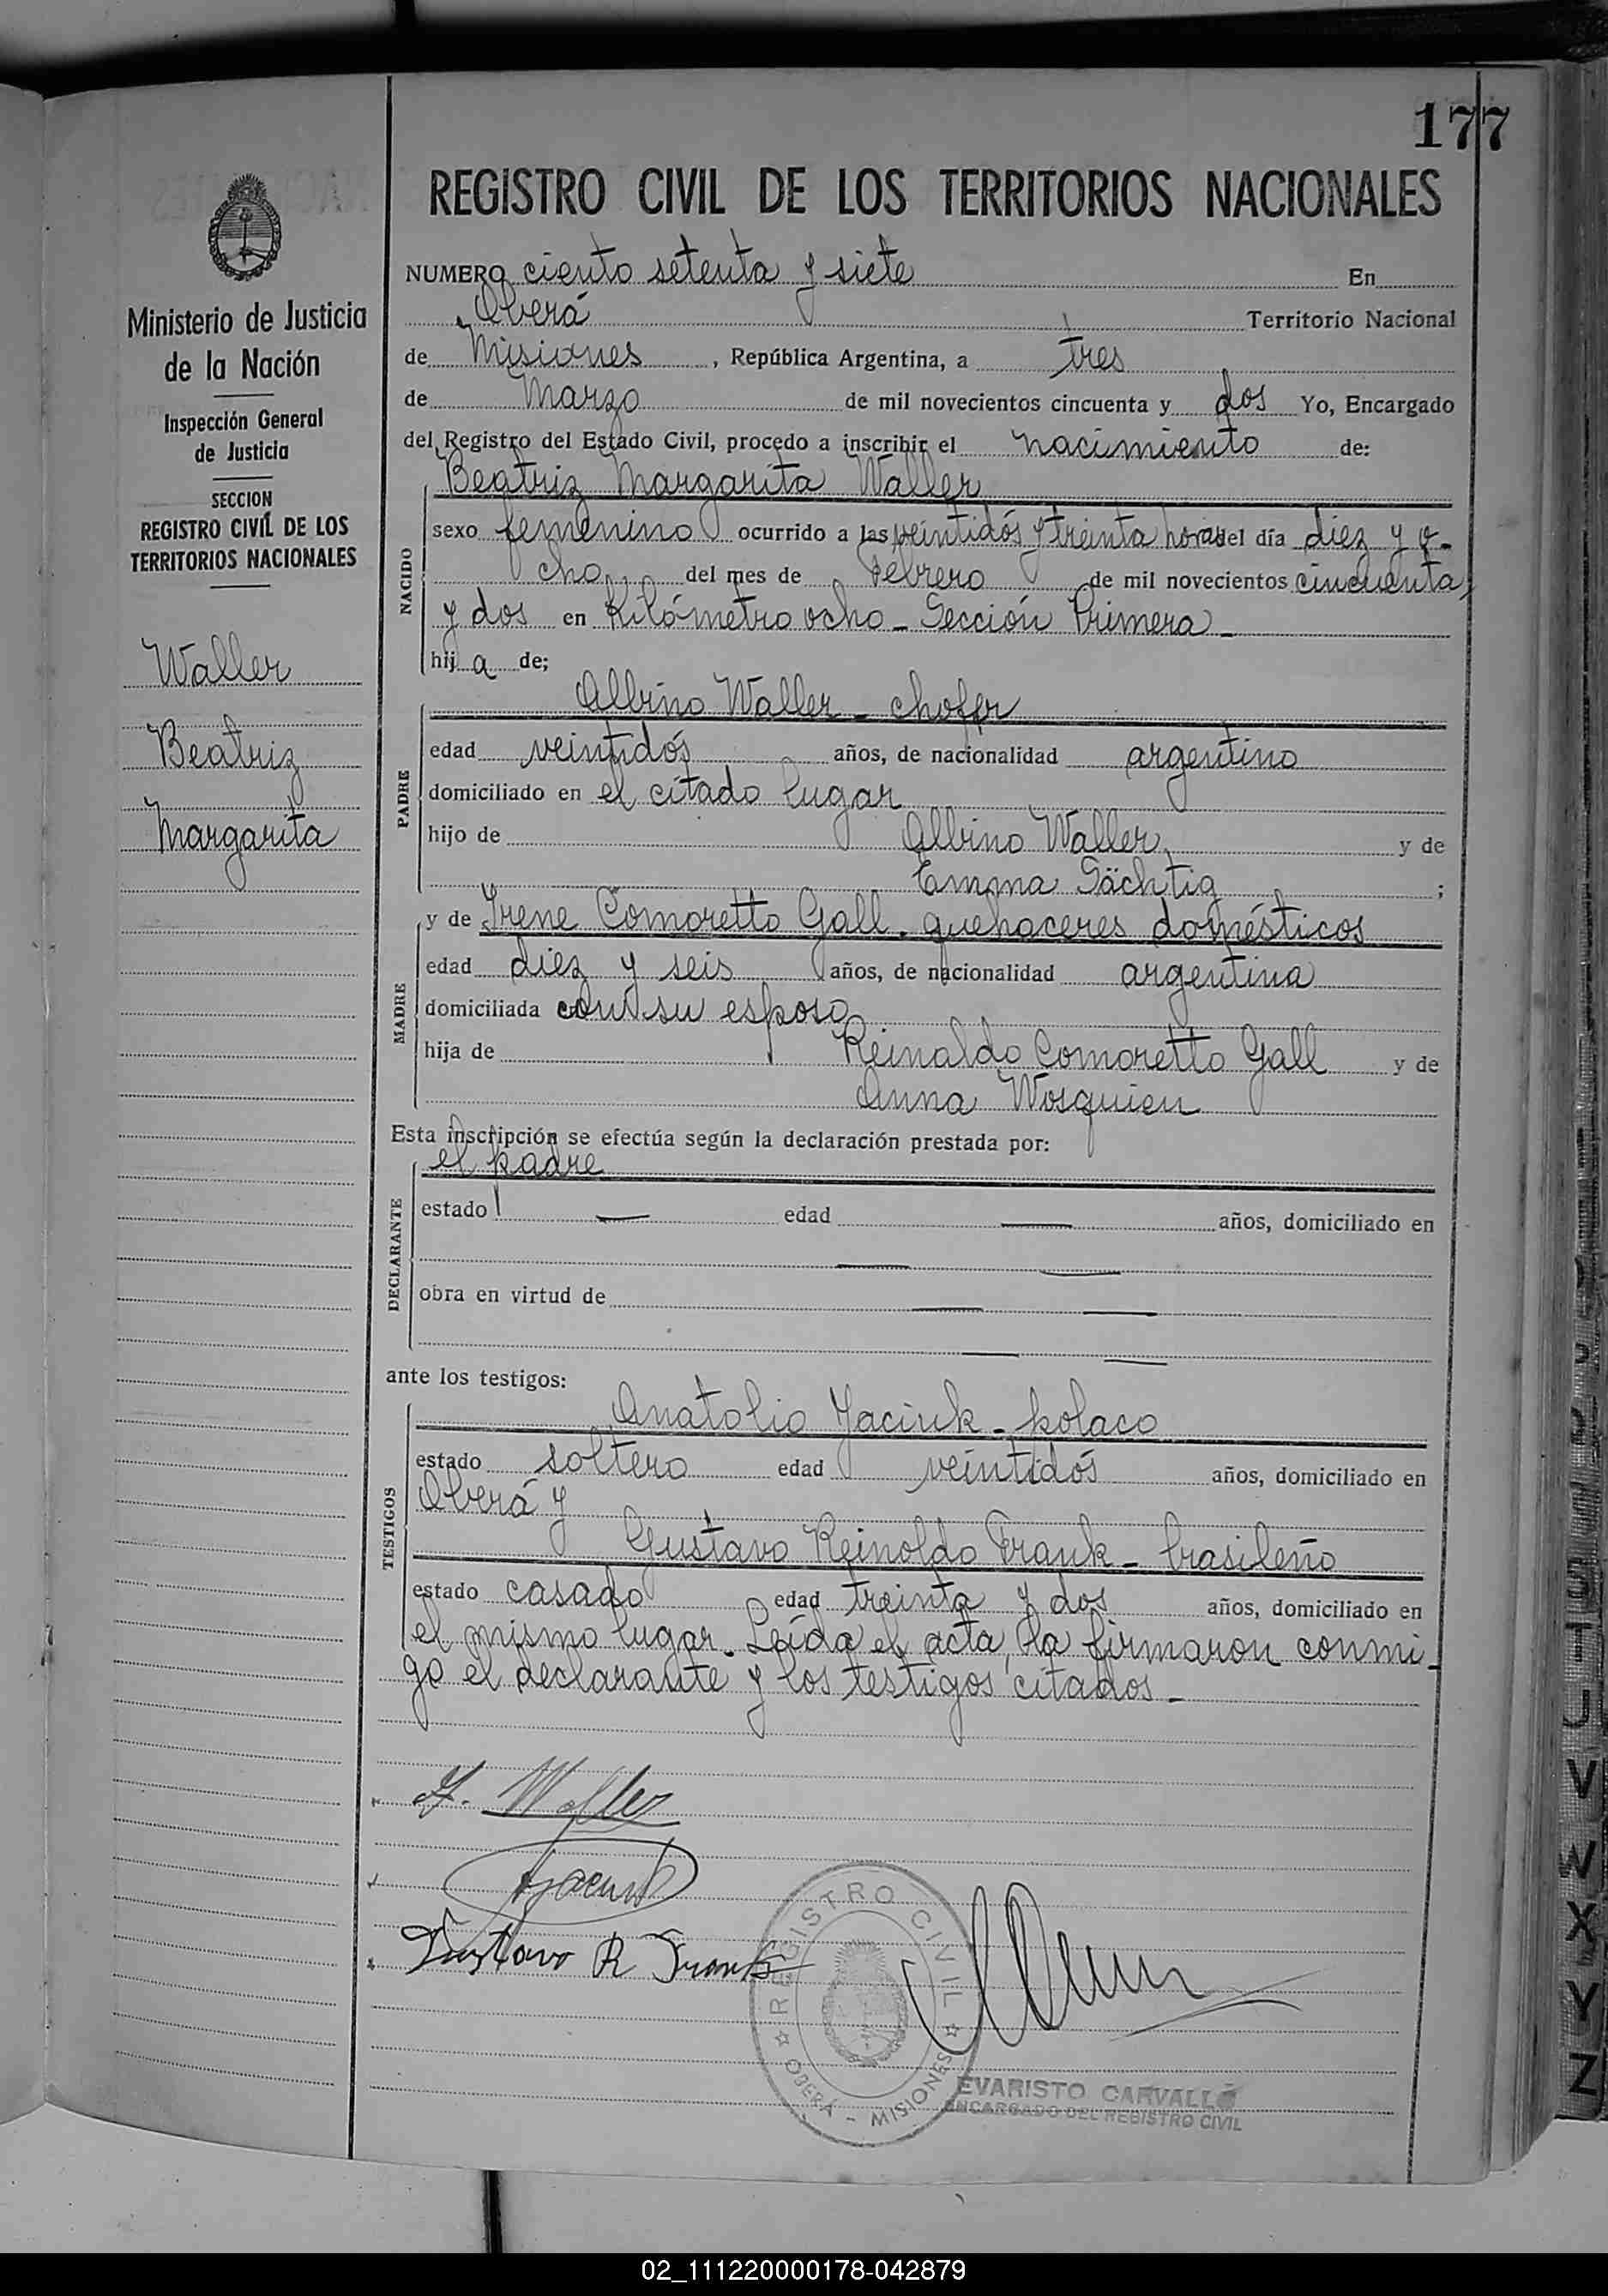 177
REGISTRO CIVIL DE LOS TERRITORIOS NACIONALES
Ministerio de Justicia
de la Nación
Inspección General
de Justicia
SECCION
REGISTRO CIVIL DE LOS
TERRITORIOS NACIONALES
Waller
Beatriz
Margarita
NUMERO ciento setenta y siete En
Oberá Territorio Nacional
de Misiones, República Argentina, a tres
de Marzo de mil novecientos cincuenta y dos Yo, Encargado
del Registro del Estado Civil, procedo a inscribir el nacimiento de:
Beatriz Margarita Waller
NACIDO
sexo femenino ocurrido a las veintidós y treinta horas del día diez y o-
cho del mes de Febrero de mil novecientos cincuenta
y dos en Kilómetro ocho - Sección Primera -
hija de;
Albino Waller - chofer
PADRE
edad veintidós años, de nacionalidad argentino
domiciliado en el citado lugar
hijo de Albino Waller, y de
Emma Sächtig ;
y de Irene Comoretto Gall - quehaceres domésticos
MADRE
edad diez y seis años, de nacionalidad argentina
domiciliada con su esposo
hija de Reinaldo Comoretto Gall y de
Anna Wosquien
Esta inscripción se efectúa según la declaración prestada por:
el padre
DECLARANTE
estado — edad — años, domiciliado en
— —
obra en virtud de — —
— —
ante los testigos:
Anatolio Jaciuk - polaco
TESTIGOS
estado soltero edad veintidós años, domiciliado en
Oberá y
Gustavo Reinoldo Frank - brasileño
estado casado edad treinta y dos años, domiciliado en
el mismo lugar. Leída el acta, la firmaron conmi-
go el declarante y los testigos citados -
Waller
Gustavo R Frank
REGISTRO CIVIL
OBERÁ - MISIONES
EVARISTO CARVALLO
ENCARGADO DEL REGISTRO CIVIL
S
T
U
V
W
X
Y
Z
02_111220000178-042879